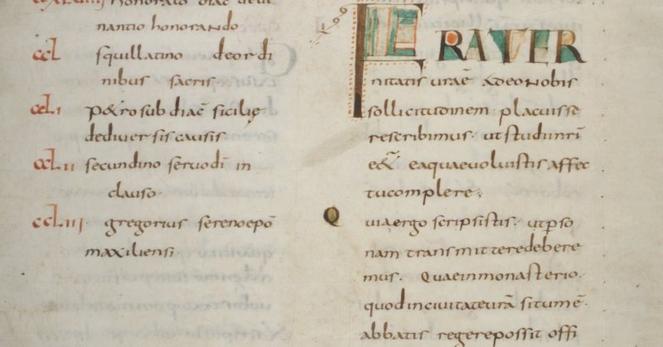 honorato diac̄ deui
nantio honorando
ccL squillatino deordi
nibus sacris
ccLi p&ro subdiac̄ sicilię
dediuersis causis
ccLii secundino seruodī in
clauso
ccLiii gregorius serenoepō
maxiliensi
FRATER
nitatis urāe adeo nobis
sollicitudinem placuisse
rescribimus. ut
e& eaquaeuoluistis affec
tucomplere;
Quiaergo scripsistis. utpso
nam transmitteredebere
mus. Quaeinmonasterio.
quodinciuitateurā situmē
abbatis regerepossit offi